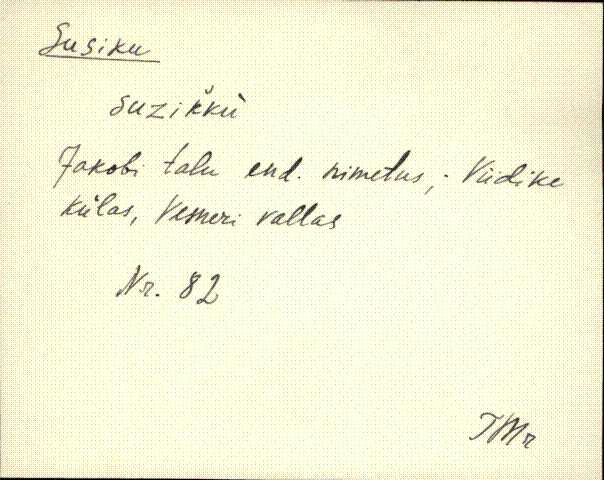 Susiku
suzikkù
Jakobi talu end. nimetus, Viidike
külas, Vesneri vallas
Nr. 82
TMr